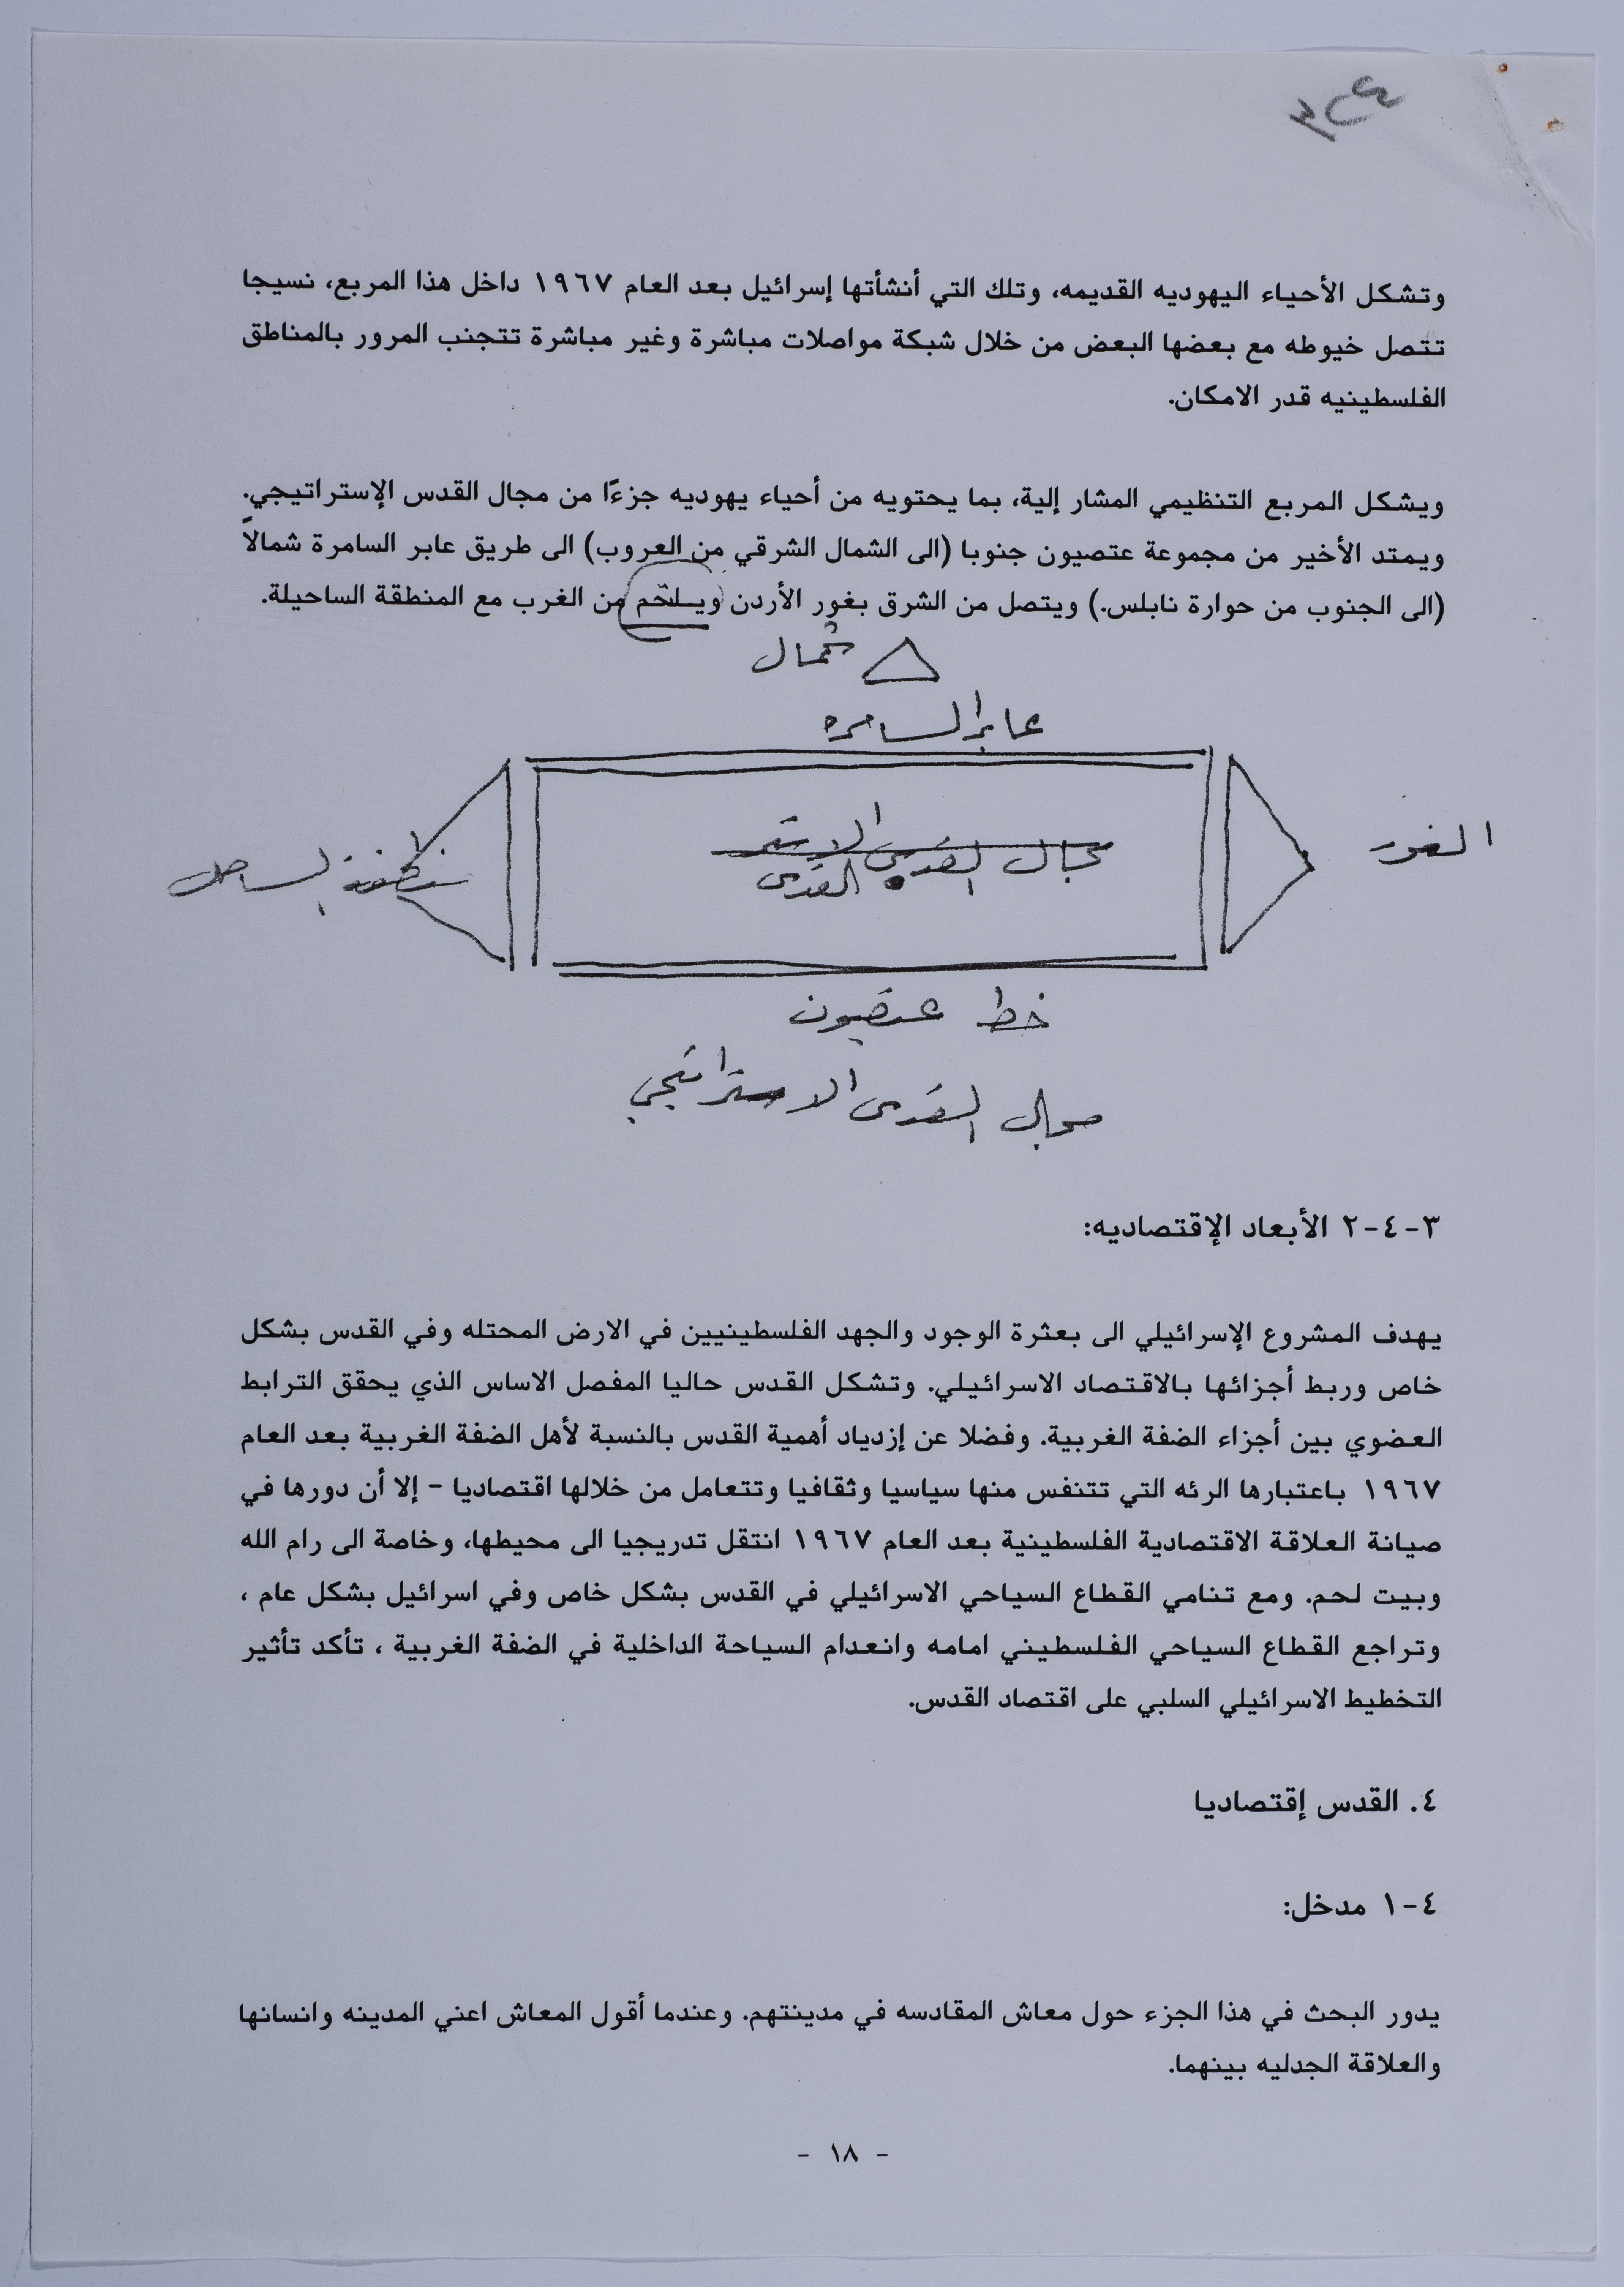 وتشكل الأحياء اليهوديه القديمه، وتلك التي أنشأتها إسرائيل بعد العام ١٩٦٧ داخل هذا المربع، نسيجا
تتصل خيوطه مع بعضها البعض من خلال شبكة مواصلات مباشرة وغير مباشرة تتجنب المرور بالمناطق
الفلسطينيه قدر الامكان.
ويشكل المربع التنظيمي المشار إلية، بما يحتويه من أحياء يهوديه جزءًا من مجال القدس الإستراتيجي.
ويمتد الأخير من مجموعة عتصيون جنوبا (الى الشمال الشرقي من العروب) الى طريق عابر السامرة شمالاً
(الى الجنوب من حوارة نابلس.) ويتصل من الشرق بغور الأردن ويلتحم من الغرب مع المنطقة الساحيلة.
شمال
عابر السامره
مجال القدس الاستر
القدس
الغور
منطقة الساحل
خط عتصيون
مجال القدس الاستراتيجي
٣-٤-٢ الأبعاد الإقتصاديه:
يهدف المشروع الإسرائيلي الى بعثرة الوجود والجهد الفلسطينيين في الارض المحتله وفي القدس بشكل
خاص وربط أجزائها بالاقتصاد الاسرائيلي. وتشكل القدس حاليا المفصل الاساس الذي يحقق الترابط
العضوي بين أجزاء الضفة الغربية. وفضلا عن إزدياد أهمية القدس بالنسبة لأهل الضفة الغربية بعد العام
١٩٦٧ باعتبارها الرئه التي تتنفس منها سياسيا وثقافيا وتتعامل من خلالها اقتصاديا - إلا أن دورها في
صيانة العلاقة الاقتصادية الفلسطينية بعد العام ١٩٦٧ انتقل تدريجيا الى محيطها، وخاصة الى رام الله
وبيت لحم. ومع تنامي القطاع السياحي الاسرائيلي في القدس بشكل خاص وفي اسرائيل بشكل عام ،
وتراجع القطاع السياحي الفلسطيني امامه وانعدام السياحة الداخلية في الضفة الغربية ، تأكد تأثير
التخطيط الاسرائيلي السلبي على اقتصاد القدس.
٤. القدس إقتصاديا
٤-١ مدخل:
يدور البحث في هذا الجزء حول معاش المقادسه في مدينتهم. وعندما أقول المعاش اعني المدينه وانسانها
والعلاقة الجدليه بينهما.
- ١٨ -